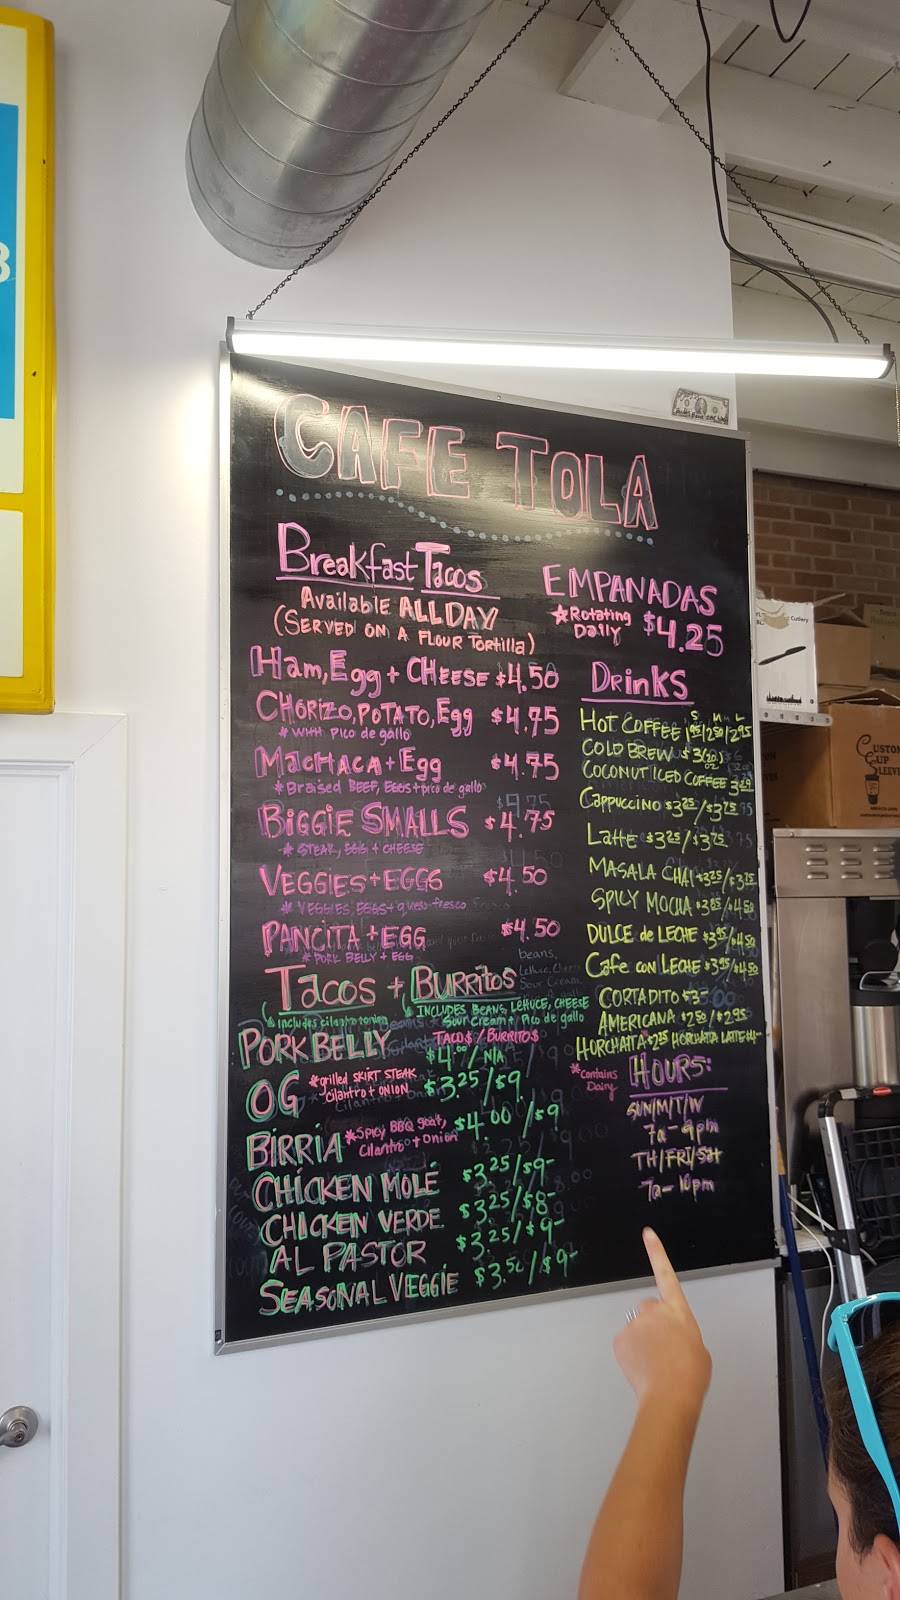 CAFE TOLA
Breakfast Tacos
Available ALL DAY
(SERVED ON A FLOUR Tortilla)
Ham, Egg + CHEESE $4.50
CHORIZO, POTATO, Egg $4.75
* WITH Pico de gallo
MACHACA + Egg $4.75
* Braised BEEF, EGGS + pico de gallo
BIGGIE SMALLS $4.75
* STEAK, EGG + CHEESE
VEGGIES + EGGS $4.50
* VEGGIES, EGGS + queso fresco
PANCITA + EGG $4.50
* PORK BELLY + EGG
TACOS + BURRITOS
includes cilantro + onion
INCLUDES BEANS, LETTUCE, CHEESE
Sour Cream + Pico de gallo
TACOS / BURRITOS
PORK BELLY $4.00 / N/A
OG *grilled SKIRT STEAK $3.25/$9
Cilantro + ONION
BIRRIA *SPICY BBQ goat, $4.00 /$9
Cilantro + Onion
CHICKEN MOLÉ $3.25/$9-
CHICKEN VERDE $3.25/$8-
AL PASTOR $3.25/$9-
SEASONAL VEGGIE $3.50/$9-
EMPANADAS
*Rotating
Daily $4.25
DRINKS
S M L
HOT COFFEE 1.95/2.50/2.95
COLD BREW $3
COCONUT ICED COFFEE
Cappuccino $3.25/$3.75
Latte $3.25/$3.75
MASALA CHAI $3.25/$3.75
SPICY MOCHA $3.85/$4.50
DULCE de LECHE $3.95/$4.50
Cafe con LECHE $3.95/$4.50
CORTADITO $3-
AMERICANA $2.50/$2.95
HORCHATA $2.75 HORCHATA LATTE $4-
*Contains
Dairy
HOURS:
SUN/M/T/W
7a-9pm
TH/FRI/Sat
7a-10pm
Cutlery
CUSTOM
CUP
SLEEVES